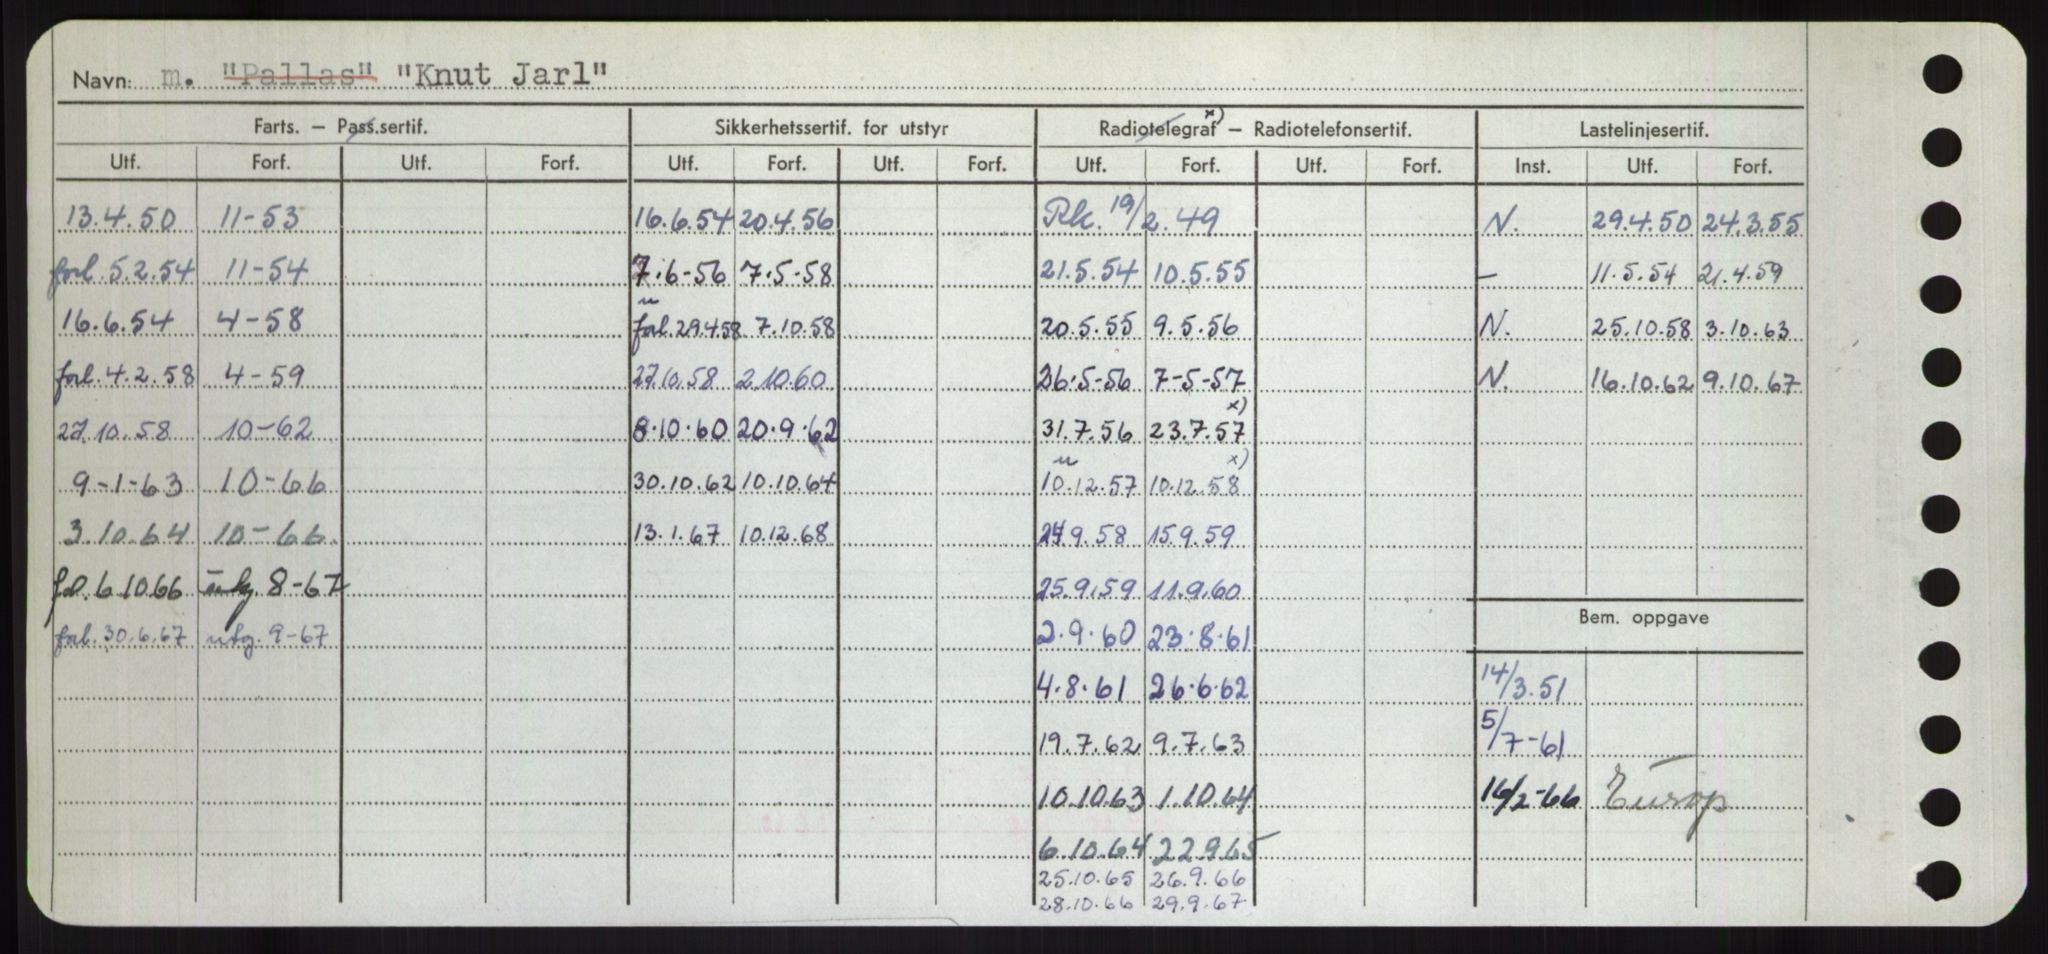 Navn: m. "Pallas" "Knut Jarl"
Farts. – Pass.sertif. Sikkerhetssertif. for utstyr Radiotelegraf x) – Radiotelefonsertif. Lastelinjesertif.
Utf. Forf. Utf. Forf. Utf. Forf. Utf. Forf. Utf. Forf. Utf. Forf. Inst. Utf. Forf.
13.4.50 11-53 16.6.54 20.4.56 Rk. 19/2.49 N. 29.4.50 24.3.55
forl. 5.2.54 11-54 7.6-56 7.5-58 21.5.54 10.5.55 – 11.5.54 21.4.59
16.6.54 4-58 forl. 29.4.58 7.10.58 20.5.55 9.5.56 N. 25.10.58 3.10.63
forl. 4.2.58 4-59 27.10.58 2.10.60 26.5-56 7-5-57 N. 16.10.62 9.10.67
27.10.58 10-62 8.10.60 20.9.62 31.7.56 23.7.57 x)
9-1-63 10-66 30.10.62 10.10.64 10.12.57 10.12.58 x)
3.10.64 10-66. 13.1.67 10.12.68 9.58 15.9.59
6.10.66 8-67 25.9.59 11.9.60
Bem. oppgave
forl. 30.6.67 utg. 9-67 2.9.60 23.8.61
4.8.61 26.6.62 14/3.51
19.7.62 9.7.63 5/7-61
10.10.63 1.10.64 16/2-66 Europ
6.10.64 22.9.65
25.10.65 26.9.66
28.10.66 29.9.67